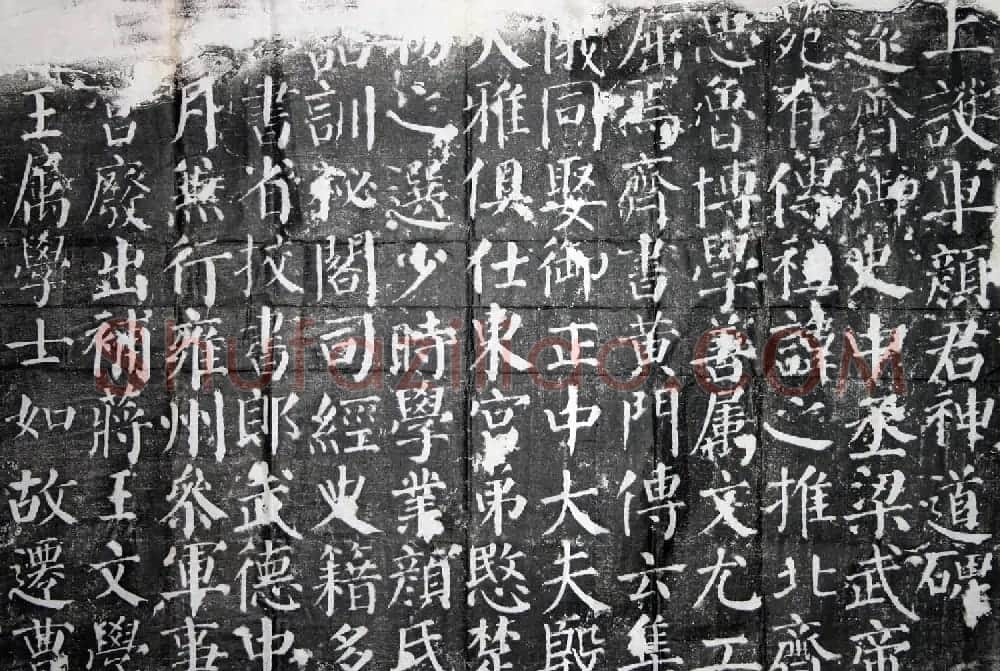 上護軍顏君神道碑
遠齊御史中丞梁武帝
苑有傳祖諱之推北齊
思魯博學善屬文尤工
屈焉齊書黃門傳云集
俄同娶御正中大夫殷
大雅俱仕東宮弟愍楚
物之選少時學業顏氏
詁訓秘閣司經史籍多
書省挍書郎武德中
月無行雍州參軍事
宮廢出補蔣王文學
王屬學士如故遷曹
Shufaziliao.COM